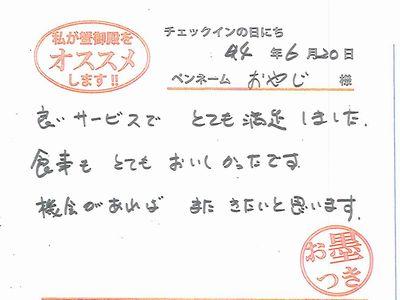 私が蟹御殿を
オススメ
します!!
チェックインの日にち
24 年 6 月 20 日
ペンネーム おやじ 様
良いサービスで とても満足しました.
食事も とても おいしかったです
機会があれば また きたいと思います.
お墨
つき